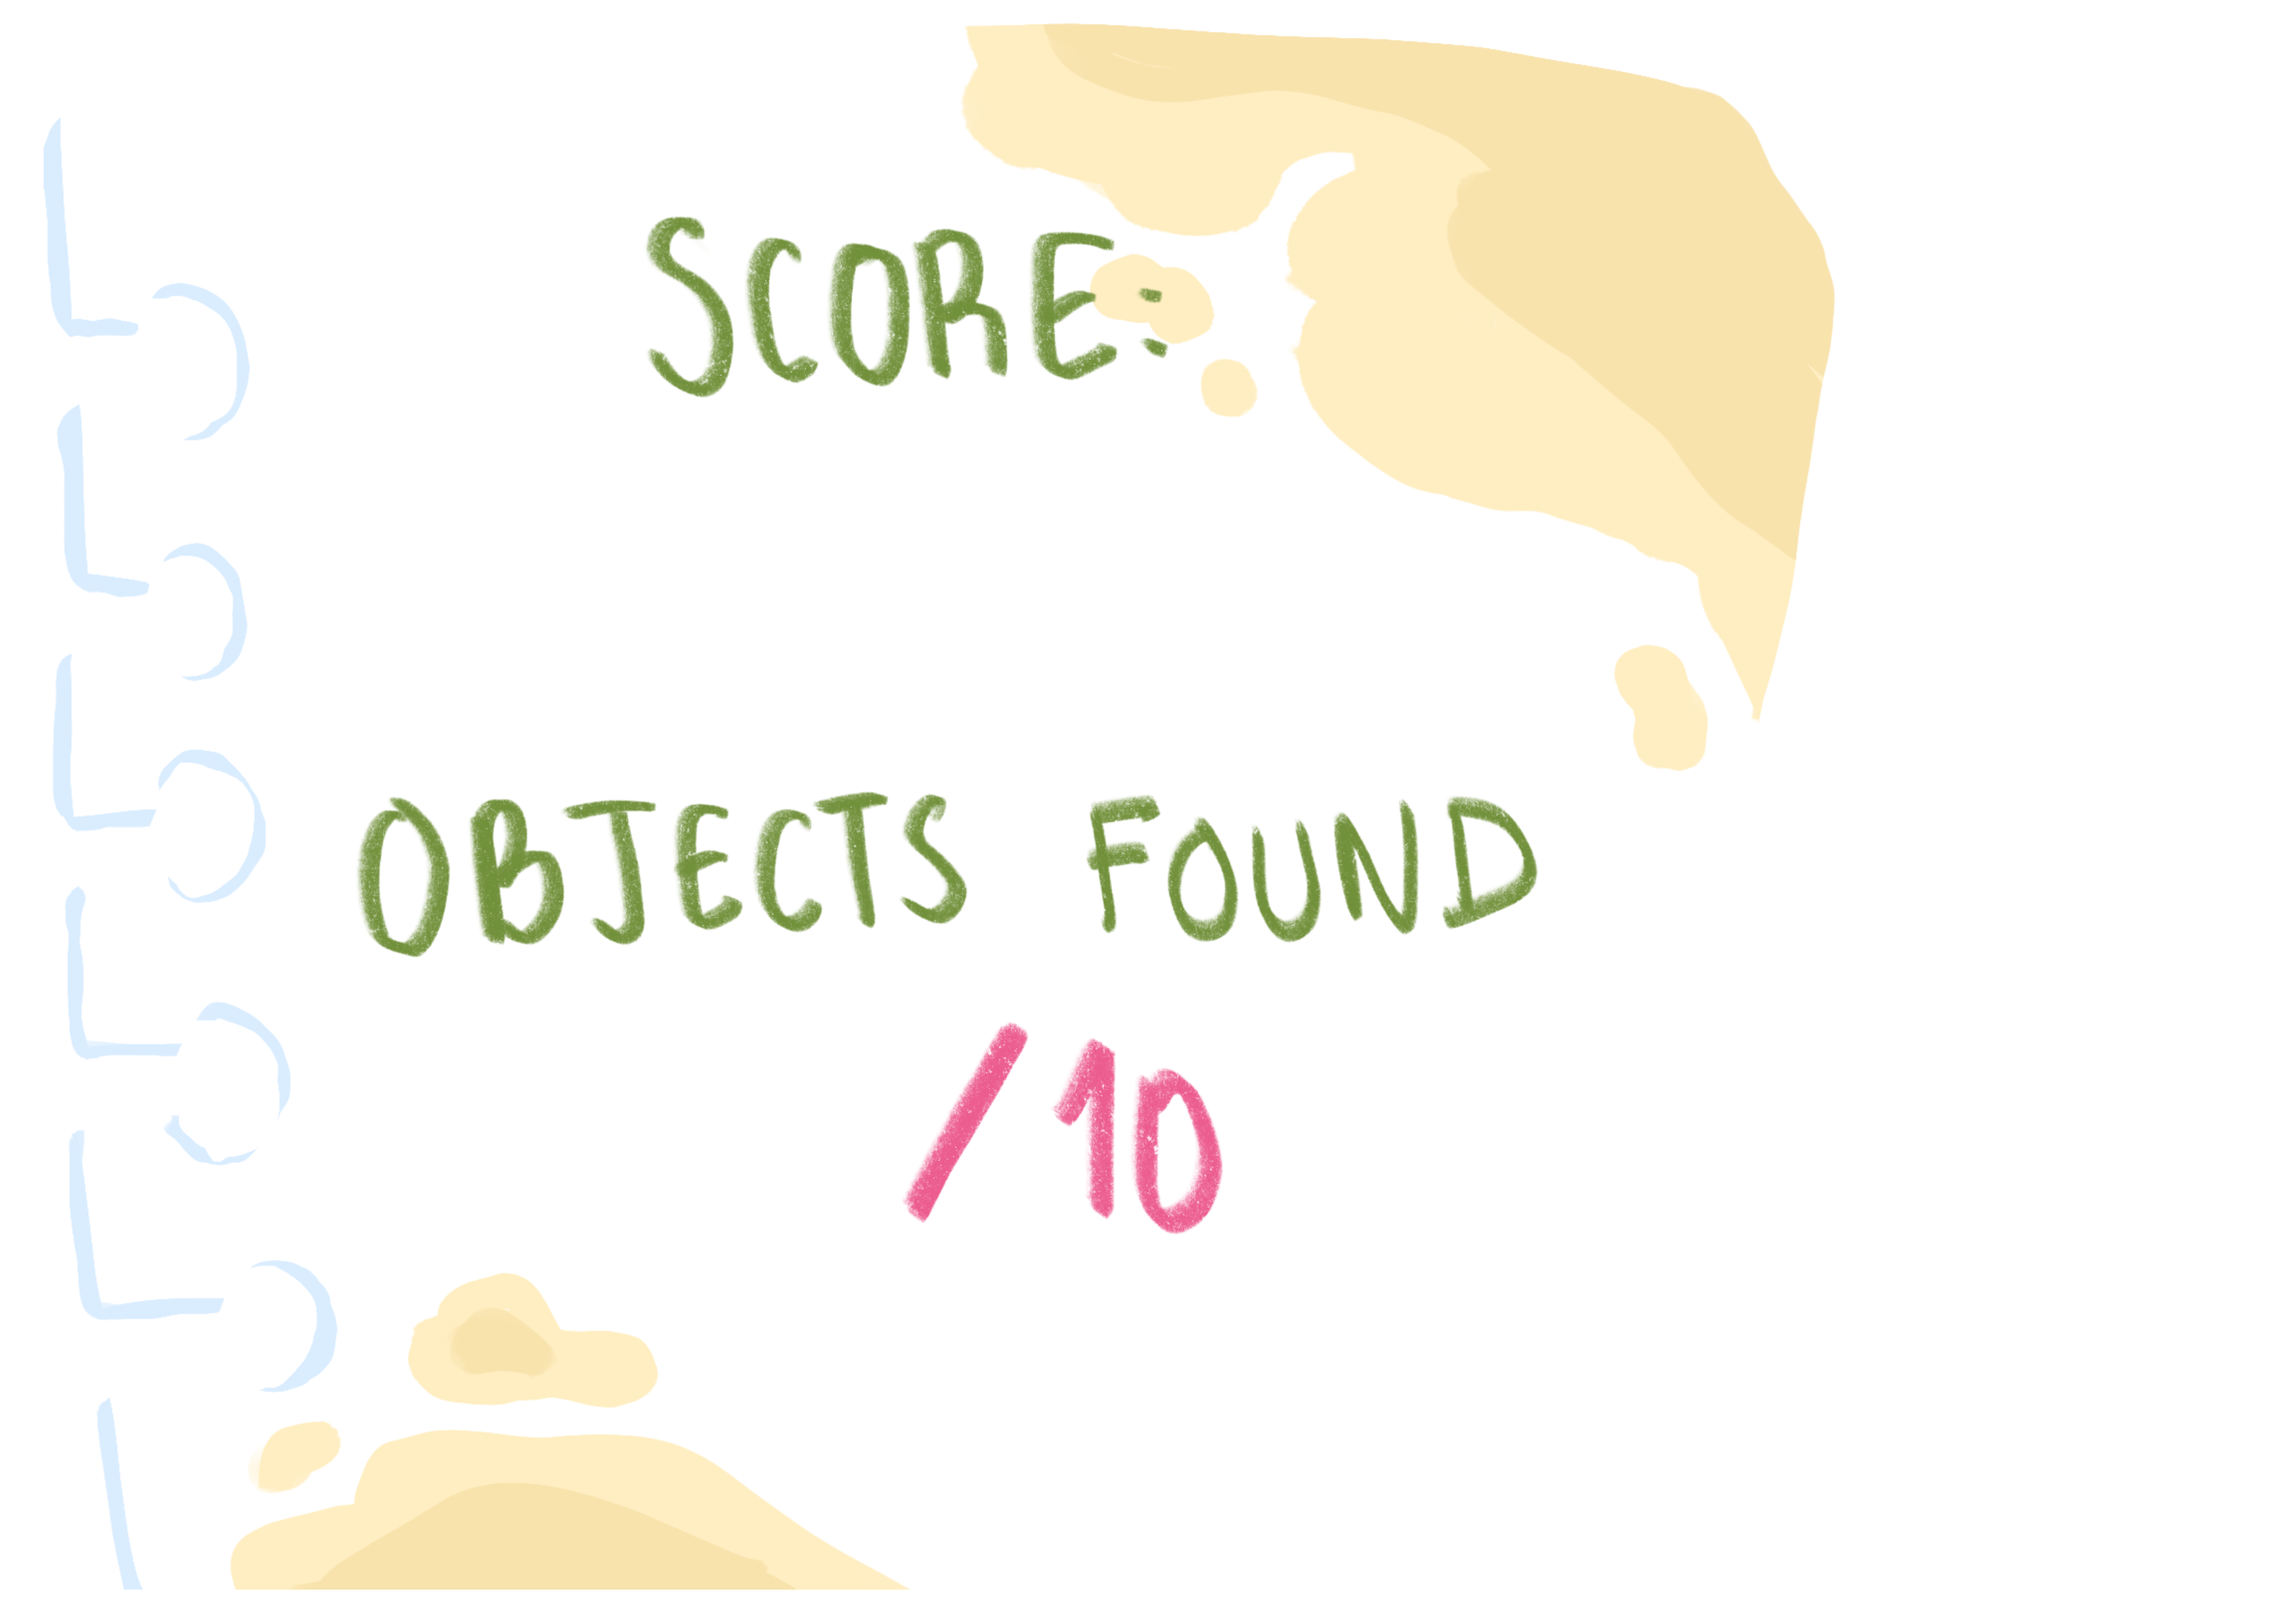 SCORE:
OBJECTS FOUND
/10